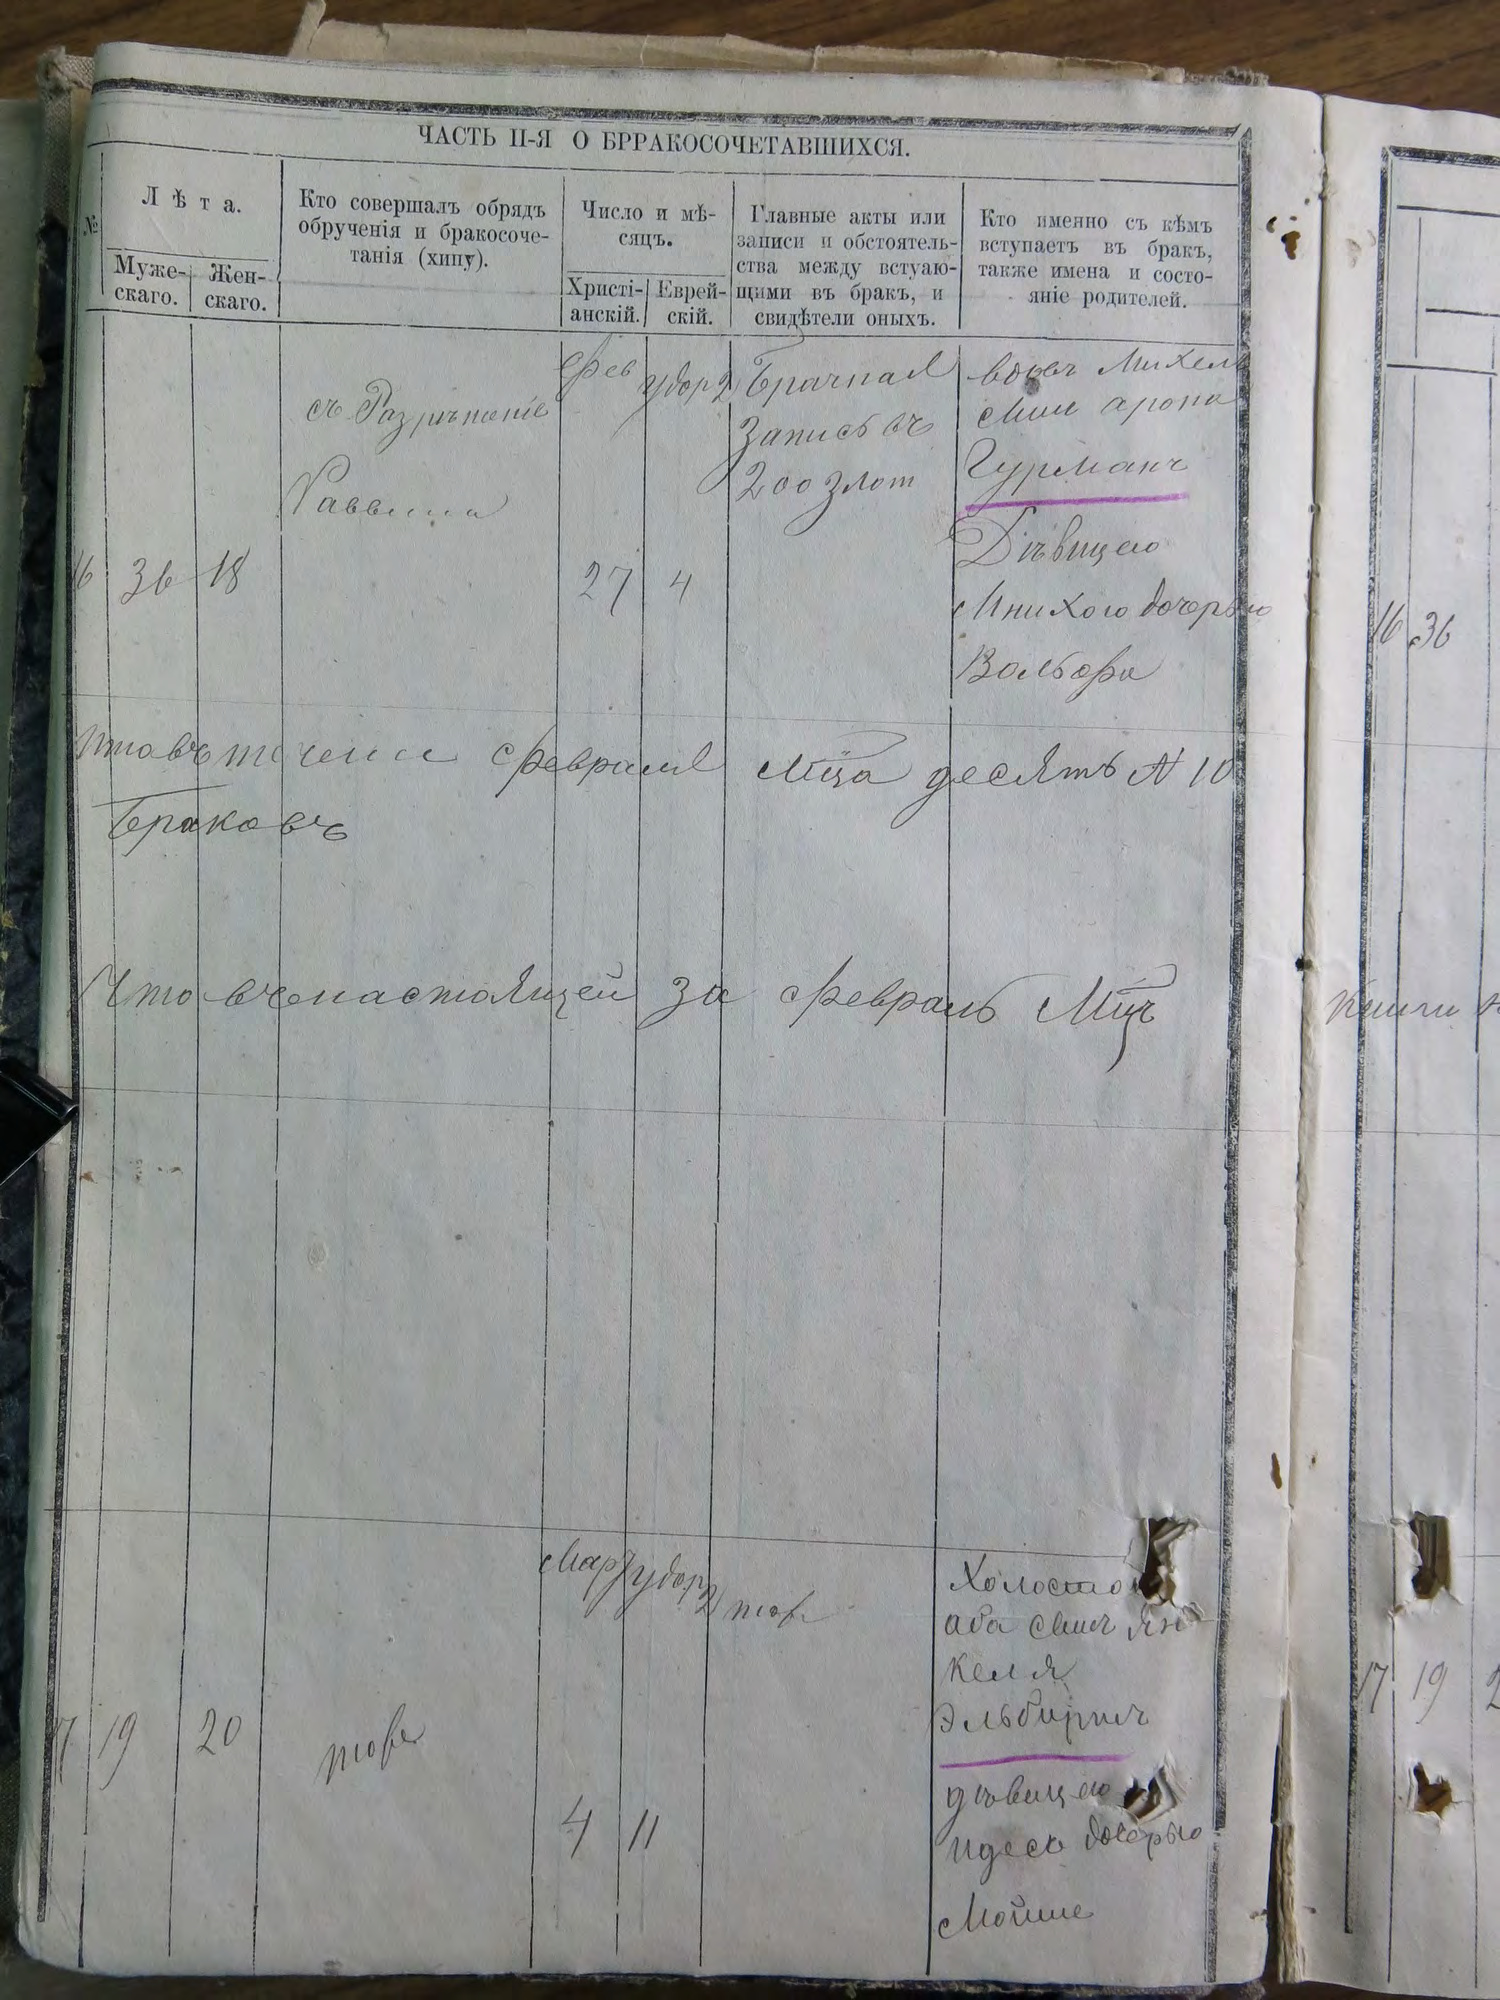 ЧАСТЬ II-Я О БРРАКОСОЧЕТАВШИХСЯ.
№
Лѣта.
Муже-
скаго.
Жен-
скаго.
Кто совершалъ обрядъ
обрученія и бракосоче-
танія (хипу).
Число и мѣ-
сяцъ.
Христі-
анскій.
Еврей-
скій.
Главные акты или
записи и обстоятель-
ства между встуаю-
щими въ бракъ, и
свидѣтели оныхъ.
Кто именно съ кѣмъ
вступаетъ въ бракъ,
также имена и состо-
яніе родителей.
16
36
18
съ Разрѣшеніе
Раввина
Фев
27
4
Брачная
запись въ
200 злот
вдовъ Михель
арона
Гурманъ
Дѣвицею
дочерью
Вольфа
февраля Мца десять № 10
Браковъ
Что въ настоящей за февраль Мцъ
17
19
20
Мар
4
11
Холосто
аба Ян
келя
дѣвицею
идесь дочерью
Мойше
Книги
16 36
17 19 2